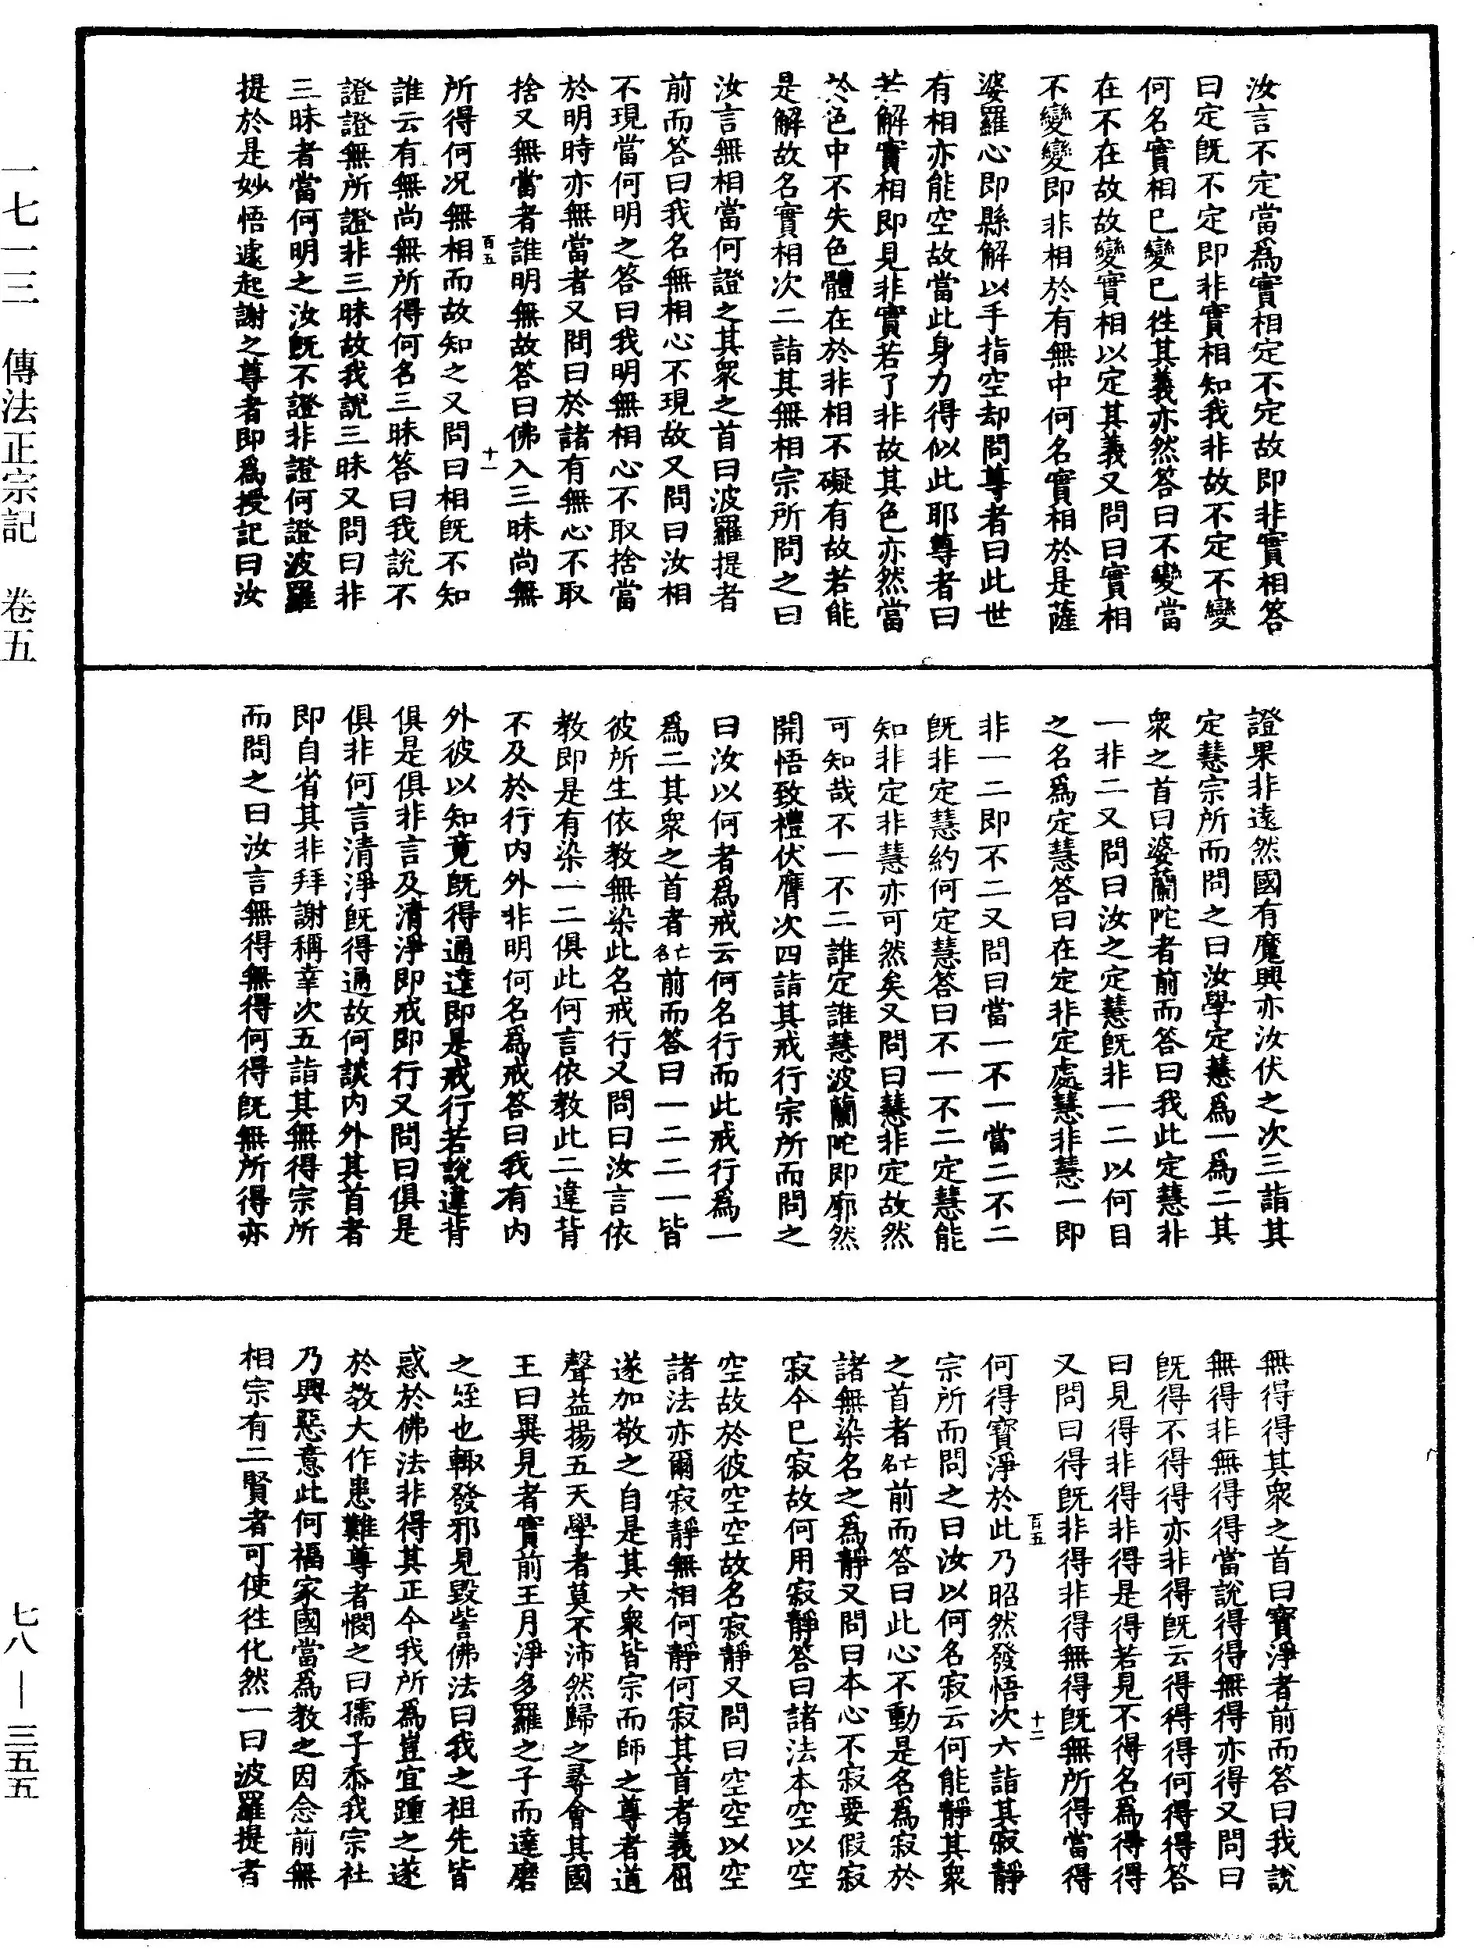 汝言不定當爲實相定不定故即非實相答
曰定旣不定即非實相知我非故不定不變
何名實相巳變巳徃其義亦然答曰不變當
在不在故故變實相以定其義又問曰實相
不變變即非相於有無中何名實相於是薩
婆羅心即縣解以手指空却問尊者曰此世
有相亦能空故當此身力得似此耶尊者曰
若解實相即見非實若了非故其色亦然當
於色中不失色體在於非相不礙有故若能
是解故名實相次二詣其無相宗所問之曰
汝言無相當何證之其衆之首曰波羅提者
前而答曰我名無相心不現故又問曰汝相
不現當何明之答曰我明無相心不取捨當
於明時亦無當者又問曰於諸有無心不取
捨又無當者誰明無故答曰佛入三昧尚無
百五 十一
所得何況無相而故知之又問曰相旣不知
誰云有無尚無所得何名三昧答曰我説不
證證無所證非三昧故我説三昧又問曰非
三昧者當何明之汝旣不證非證何證波羅
提於是妙悟遽起謝之尊者即爲授記曰汝
證果非遠然國有魔興亦汝伏之次三詣其
定慧宗所而問之曰汝學定慧爲一爲二其
衆之首曰婆蘭陀者前而答曰我此定慧非
一非二又問曰汝之定慧旣非一二以何目
之名爲定慧答曰在定非定處慧非慧一即
非一二即不二又問曰當一不一當二不二
旣非定慧約何定慧答曰不一不二定慧能
知非定非慧亦可然矣又問曰慧非定故然
可知哉不一不二誰定誰慧波蘭陀即廓然
開悟致禮伏膺次四詣其戒行宗所而問之
曰汝以何者爲戒云何名行而此戒行爲一
爲二其衆之首者亡名前而答曰一二二一皆
彼所生依教無染此名戒行又問曰汝言依
教即是有染一二俱此何言依教此二違背
不及於行内外非明何名爲戒答曰我有内
外彼以知竟旣得通達即是戒行若說違背
俱是俱非言及清淨即戒即行又問曰俱是
俱非何言清淨旣得通故何談内外其首者
即自省其非拜謝稱幸次五詣其無得宗所
而問之曰汝言無得無得何得旣無所得亦
無得得其衆之首曰寳淨者前而答曰我說
無得非無得得當說得得無得亦得又問曰
旣得不得得亦非得旣云得得得何得得答
曰見得非得非得是得若見不得名爲得得
又問曰得旣非得非得無得旣無所得當得
百五 十二
何得寳淨於此乃昭然發悟次六詣其寂靜
宗所而問之曰汝以何名寂云何能靜其衆
之首者亡名前而答曰此心不動是名爲寂於
諸無染名之爲靜又問曰本心不寂要假寂
寂今巳寂故何用寂靜答曰諸法本空以空
空故於彼空空故名寂靜又問曰空空以空
諸法亦爾寂靜無相何靜何寂其首者義屈
遂加敬之自是其六衆皆宗而師之尊者道
聲益揚五天學者莫不沛然歸之尋會其國
王曰異見者實前王月淨多羅之子而達磨
之姪也輙發邪見毁訾佛法曰我之祖先皆
惑於佛法非得其正今我所爲豈宜踵之遂
於教大作患難尊者憫之曰孺子忝我宗社
乃興惡意此何福家國當爲教之因念前無
相宗有二賢者可使徃化然一曰波羅提者
一七一三 傳法正宗記 卷五
七八 — 三五五